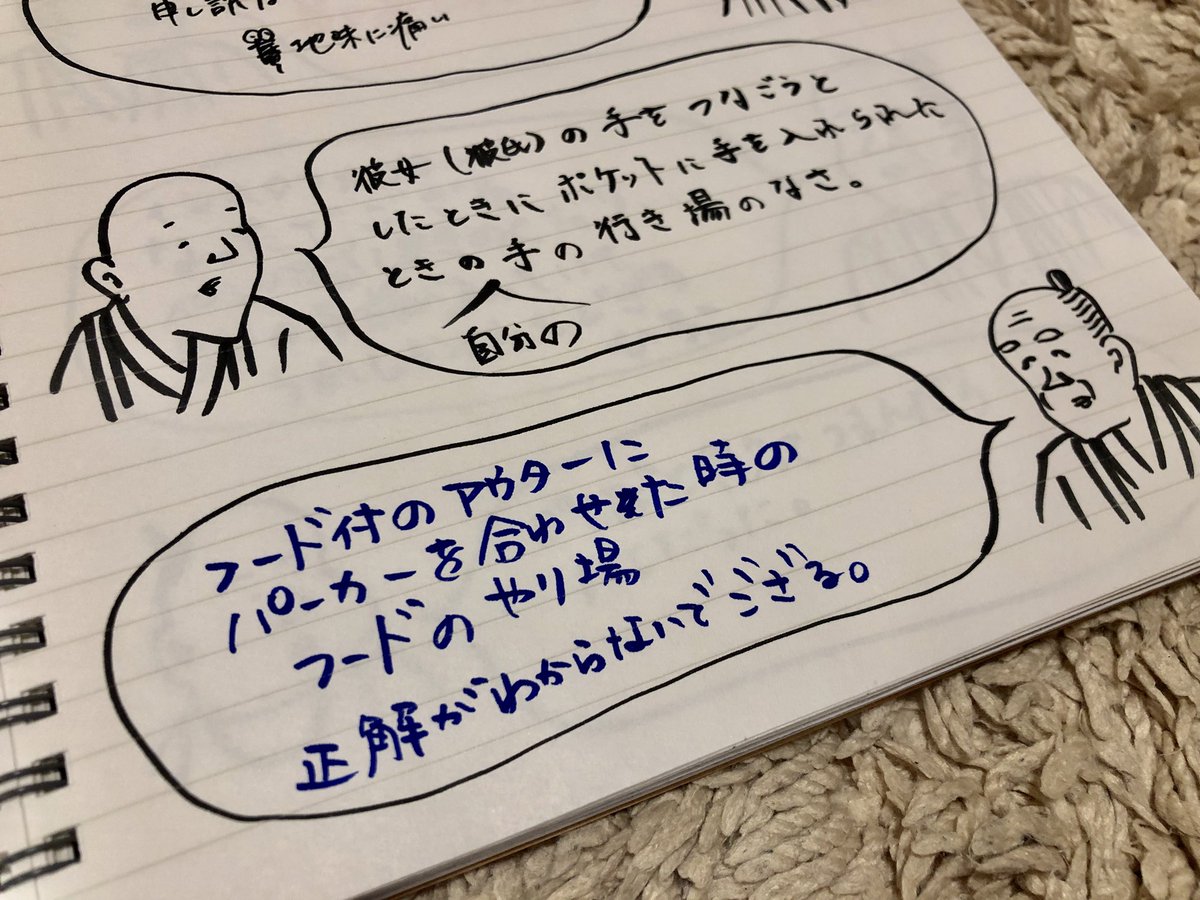 申し訳な
地味に痛い
彼女(彼氏)の手をつなごうと
したときにポケットに手を入れられた
ときの手の行き場のなさ。
自分の
フード付のアウターに
パーカーを合わせ来た時の
フードのやり場
正解がわからないでござる。